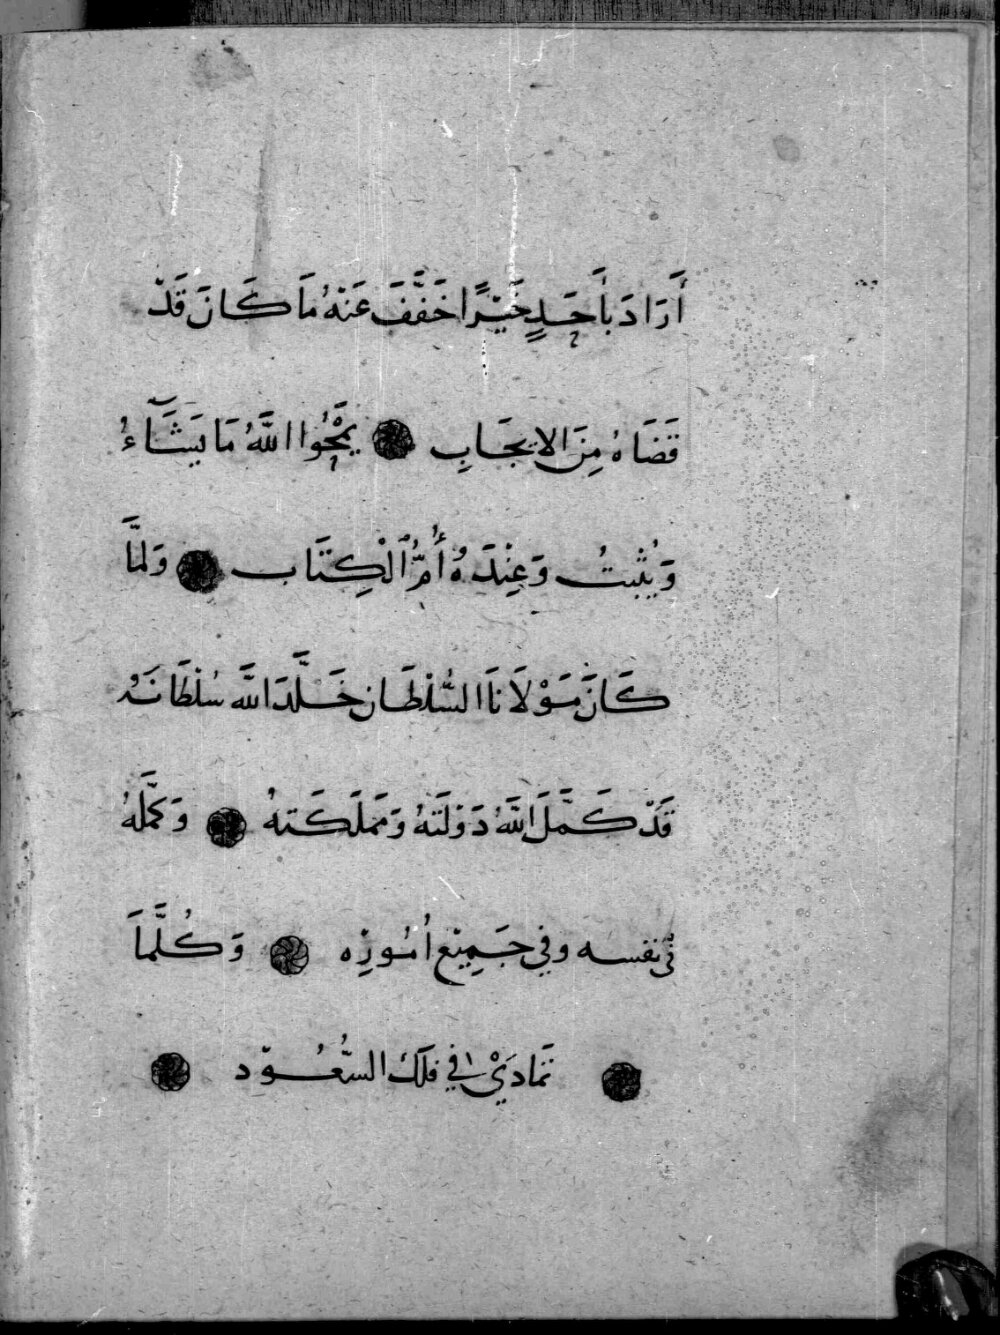 أَرَادَ بأَحَدٍ خَيْرًا خَفَّفَ عَنْهُ مَا كَانَ قَدْ
قَضَاهُ مِنَ الإيجَابِ يَمْحُوا اللَّهُ مَا يَشَآءُ
وَيُثْبِتُ وَعِنْدَهُ أُمُّ ٱلْكِتَاب وَلَمَّا
كَانَ مَوْلَانَا السُّلْطَان خَلَّدَ اللَّه سُلْطَانَهُ
قَدْ كَمَّلَ اللَّهُ دَوْلَتَهُ وَمَملَكَتهُ وَكَمَّلَهُ
فى نفسه وفي جَمِيْع اُمُورِه وَكُلَّمَا
تَمَادَيْ في فلَك السُّعُوْد